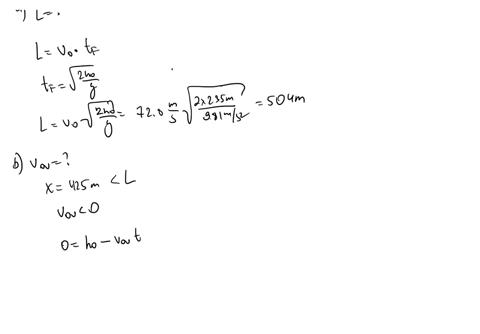 a) L= ?
L = v₀ · t_F
t_F = √(2h₀/g)
L = v₀ √(2h₀/g) = 72.0 m/s √(2×235m/9.81m/s²) = 504m
b) v₀ᵥ = ?
x = 425m < L
v₀ᵥ < 0
0 = h₀ − v₀ᵥ t